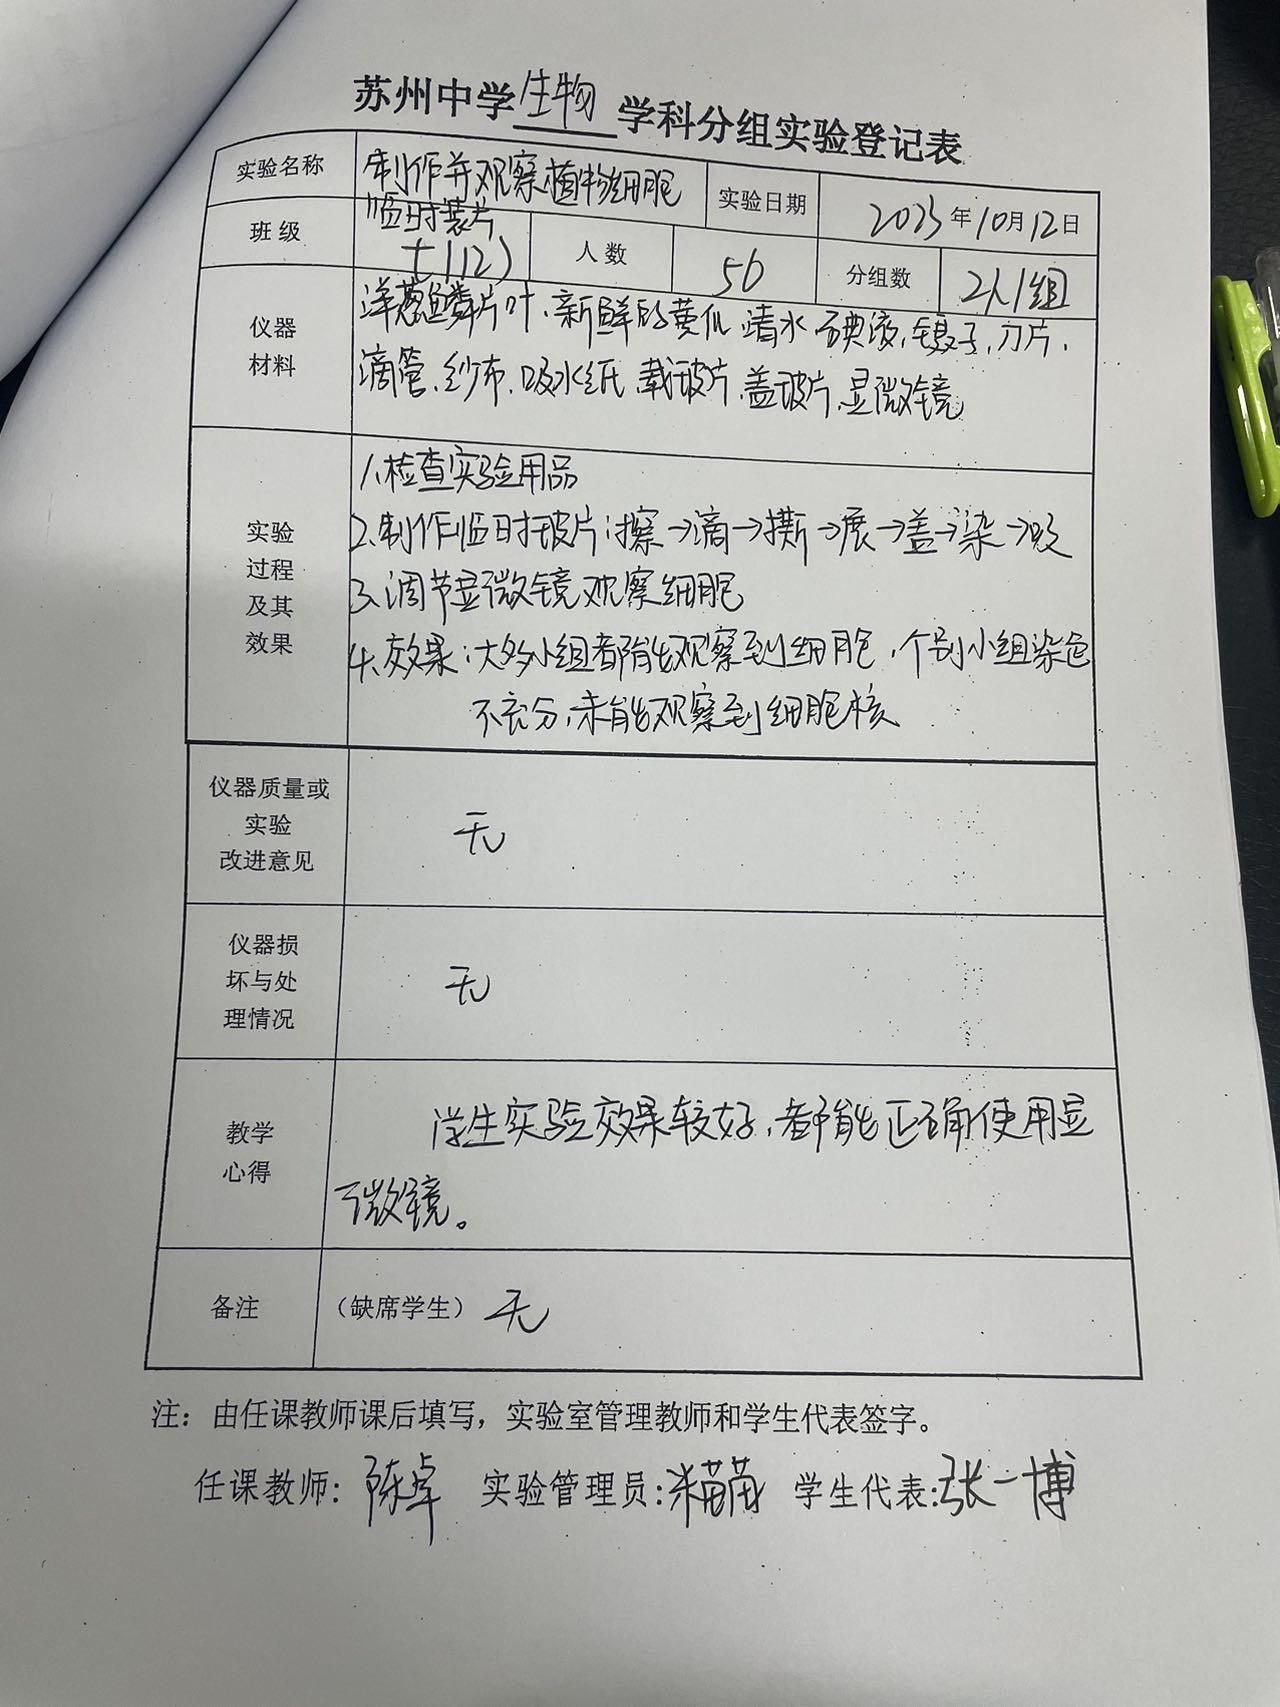 苏州中学生物学科分组实验登记表
实验名称 制作并观察植物细胞临时装片 实验日期 2023年10月12日
班级 七(12) 人数 56 分组数 2人1组
仪器材料
洋葱鳞片叶、新鲜的黄瓜、清水、碘液、镊子、刀片、
滴管、纱布、吸水纸、载玻片、盖玻片、显微镜
实验过程及其效果
1、检查实验用品
2、制作临时玻片:擦→滴→撕→展→盖→染→吸
3、调节显微镜观察细胞
4、效果:大多小组都能观察到细胞,个别小组染色
不充分,未能观察到细胞核
仪器质量或实验改进意见 无
仪器损坏与处理情况 无
教学心得
学生实验效果较好,都能正确使用显
微镜。
备注 (缺席学生) 无
注:由任课教师课后填写,实验室管理教师和学生代表签字。
任课教师:陈卓 实验管理员: 学生代表:张一博